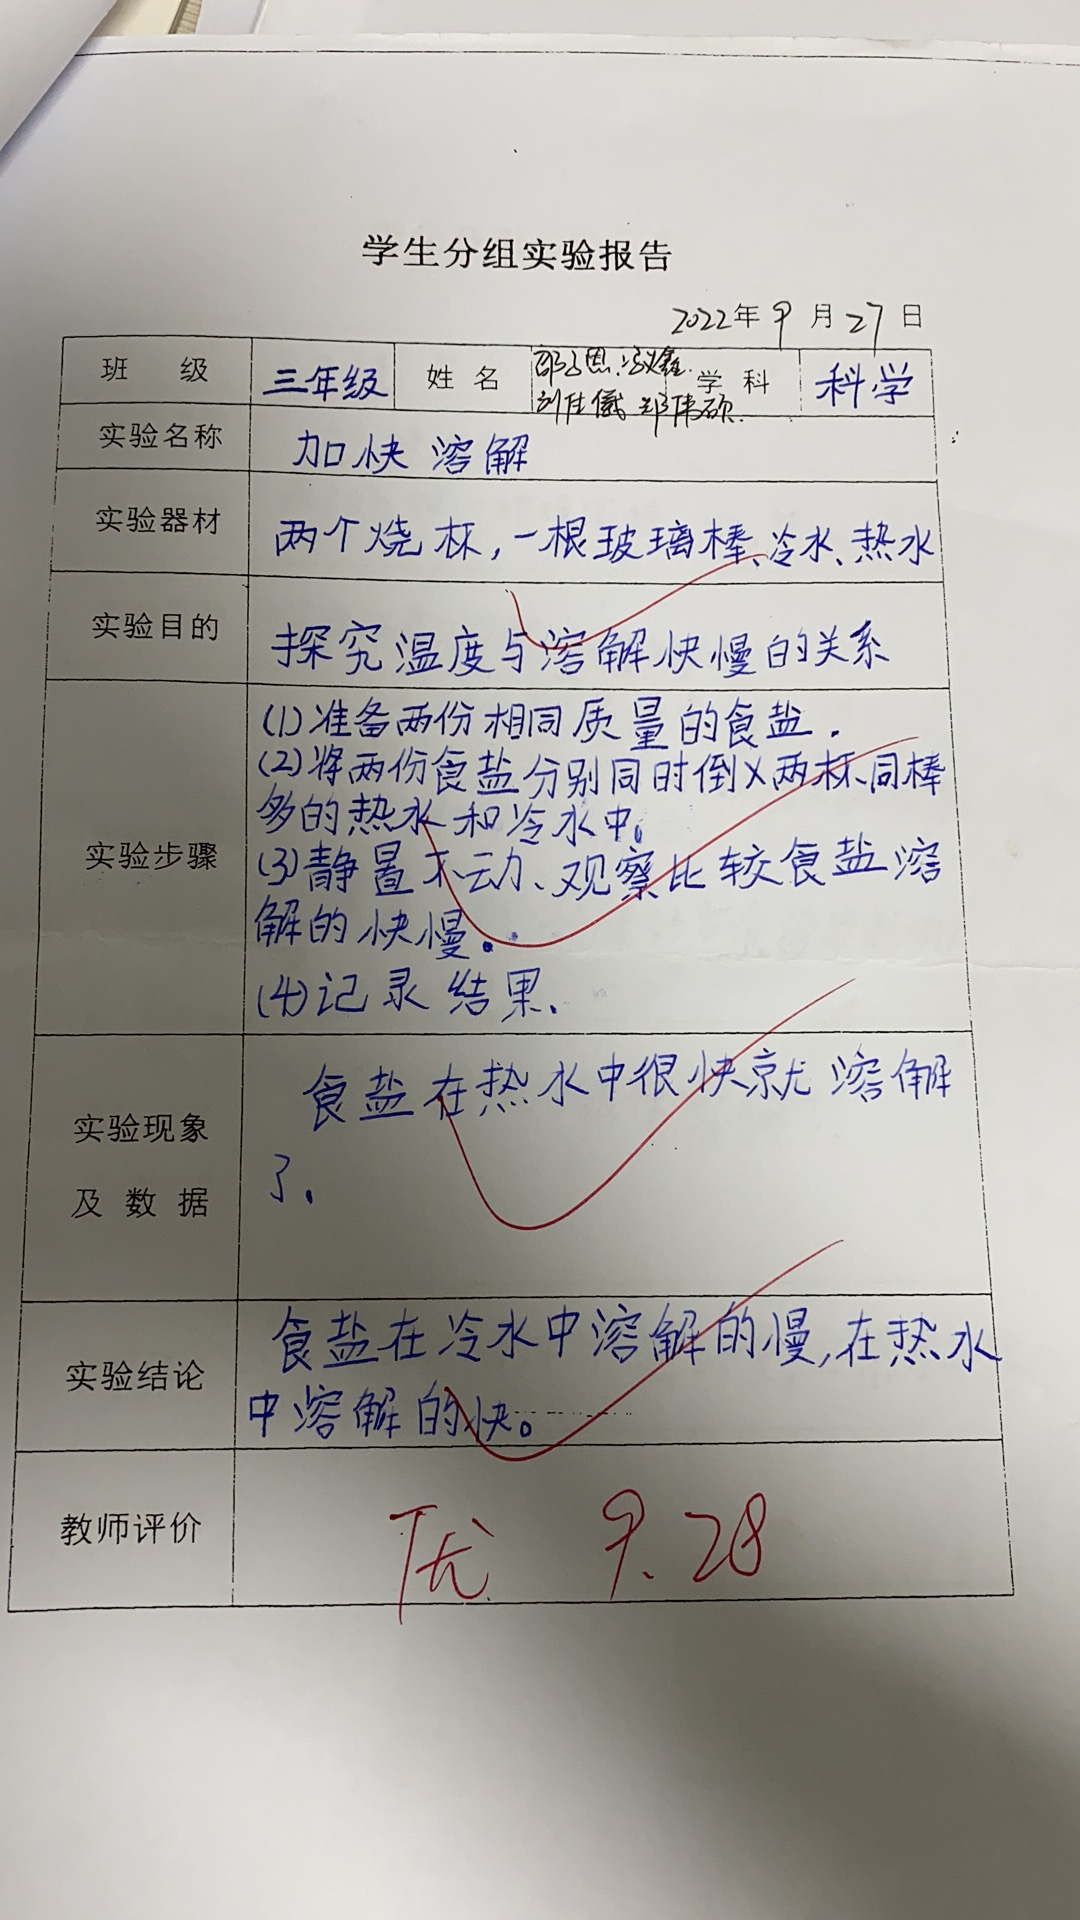 学生分组实验报告
2022年9月27日
班 级 三年级 姓名 学科 科学
刘佳仪 郑伟硕
实验名称 加快溶解
实验器材 两个烧杯,一根玻璃棒、冷水、热水
实验目的 探究温度与溶解快慢的关系
实验步骤
(1)准备两份相同质量的食盐.
(2)将两份食盐分别同时倒入两杯同棒
多的热水和冷水中。
(3)静置不动、观察比较食盐溶
解的快慢。
(4)记录结果.
实验现象
及数据
食盐在热水中很快就溶解
了.
实验结论
食盐在冷水中溶解的慢,在热水
中溶解的快。
教师评价 优 9.28